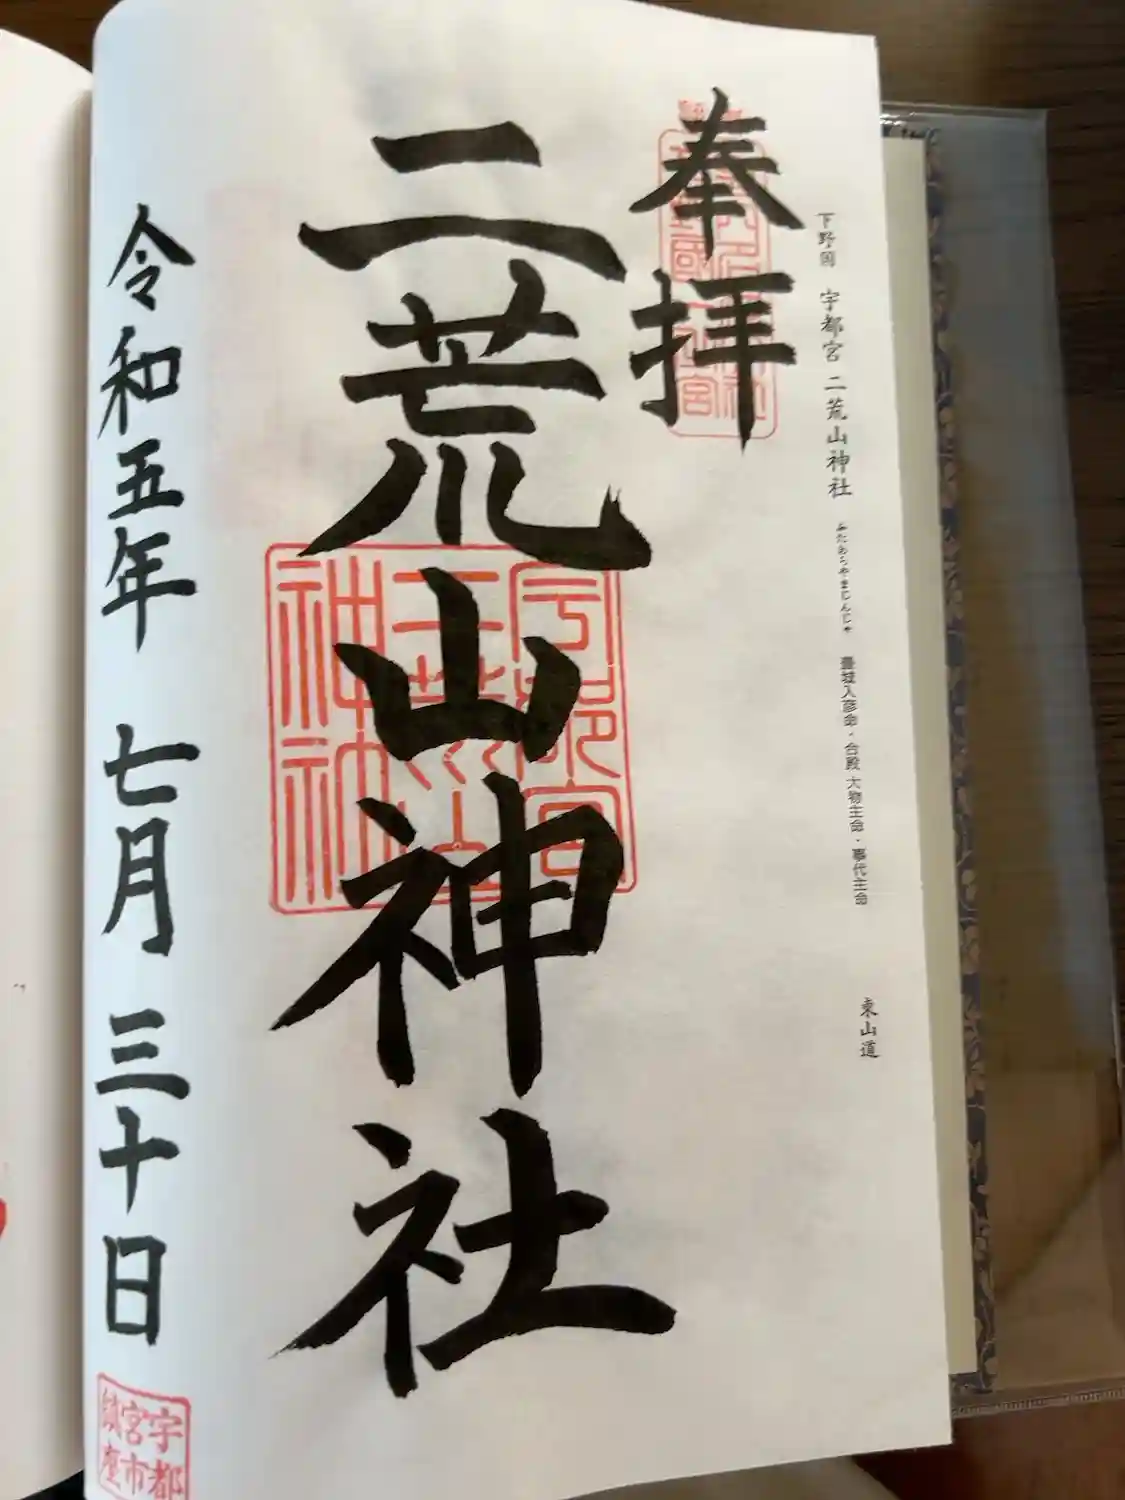 下野国 宇都宮 二荒山神社 ふたあらやまじんじゃ 豊城入彦命・合殿 大物主命・事代主命 東山道
奉拝
二荒山神社
宇都宮
二荒山
神社
令和五年 七月 三十日
宇都
宮市
鎮座